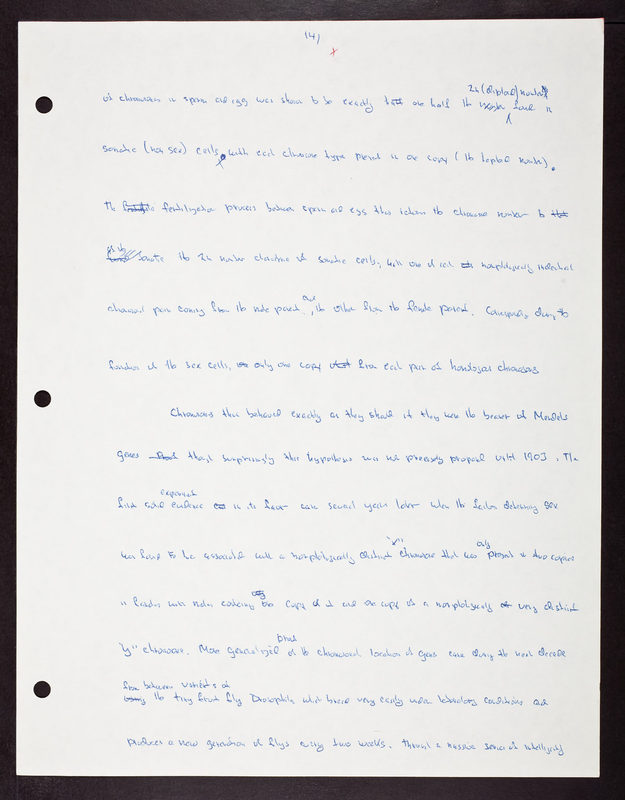 141
of chromosomes in sperm and egg was shown to be exactly one half the 2n (diploid) number found in
somatic (non sex) cells, with each chromosome type present in one copy (the haploid number).
The fertilization process between sperm and egg thus returns the chromosome number to
the 2n number of somatic cells, with one of each morphologically
chromosomal pair coming from the male parent and, the other from the female parent. Conversely during the
formation of the sex cells, only one copy from each pair of homologous chromosomes
Chromosomes thus behaved exactly as they should if they were the bearers of Mendel's
genes though surprisingly this hypothesis was not precisely proposed until 1903. The
first solid experimental evidence in its favor came several years later when the factor determining sex
was found to be associated with a morphologically distinct "X" chromosome that was only present in two copies
in females with males containing only one copy of it and one copy of a morphologically very distinct
"Y" chromosome. More generalized proof of the chromosomal location of genes came during the next decade
from between the tiny fruit fly Drosophila which breeds very easily under laboratory conditions and
produces a new generation of flys every two weeks. Through a massive series of intelligently